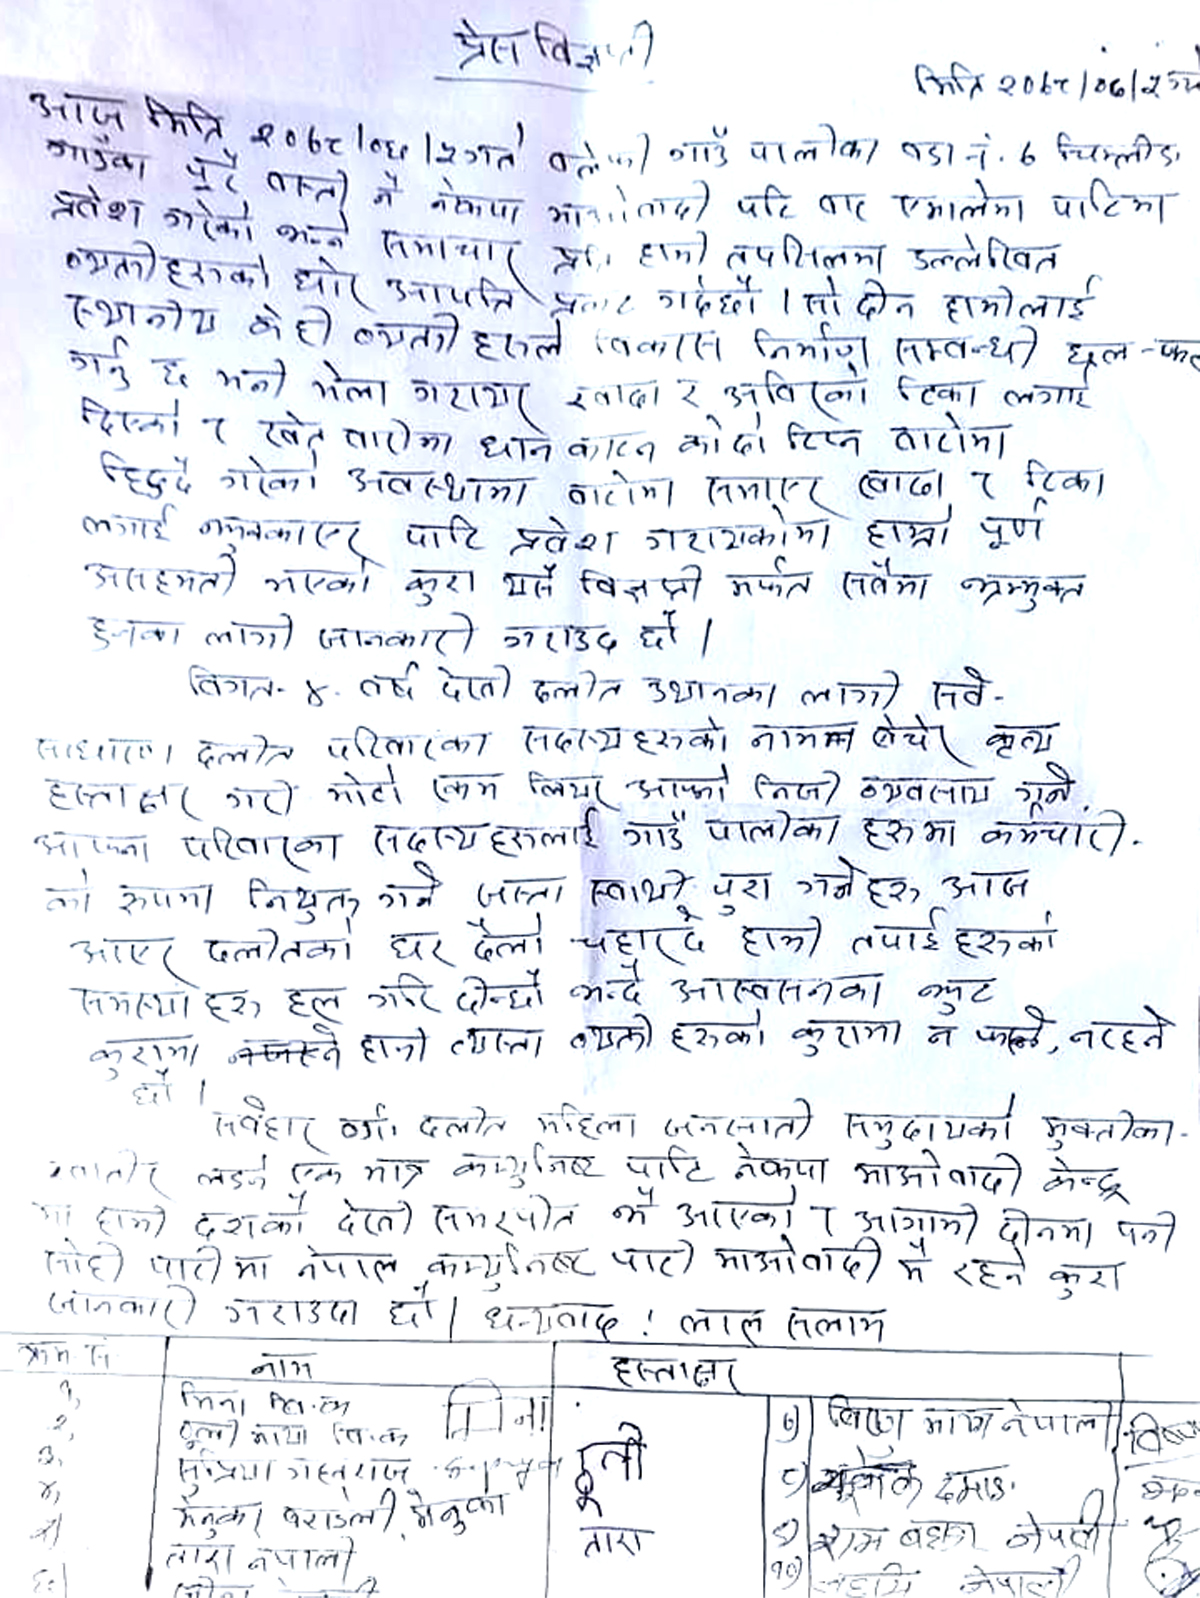 प्रेस विज्ञप्ती
मिति २०७८/०७/२ गते
आज मिति २०७८/०७/२गते बलेफी गाउँ पालीका वडा नं. ७
गाउँका पुरै वस्ती नै नेकपा माओवादी पार्टि बाट एमालेमा पार्टिमा
प्रवेश गरेको भन्ने समाचार प्रति हामी तपसिलमा उल्लेखित
व्यक्तीहरुको घोर आपत्ति प्रकट गर्दछौं । सो दीन हामीलाई
स्थानीय केही व्यक्ती हरुले विकास निर्माण सम्बन्धी छल-फल
गर्नु छ भनी भेला गराएर खादा र अविरको टिका लगाई
दिएको र खेत बारीमा धान काट्न कोदो टिप्न बाटोमा
हिड्दै गरेको अवस्थामा बाटोमा समाएर खादा र टिका
लगाई पार्टि प्रवेश गराएकोमा हाम्रो पूर्ण
असहमती भएको कुरा यसै विज्ञप्ती मर्फत सबैमा भ्रममुक्त
हुनका लागी जानकारी गराउद छौं ।
विगत ४ वर्ष देखी दलीत उथानका लागी सर्व-
साधारण दलीत परिवारका सदस्यहरुको नाम बेचेर कृत्य
हस्ताक्षर गरी मोटो रकम लिएर आफ्नो निजी व्यवसाय गर्ने,
आफ्ना परिवारका सदस्यहरुलाई गाउँ पालीका हरुमा कर्मचारी-
को रुपमा नियुक्त गर्ने जस्ता स्वार्थ पुरा गर्नेहरु आज
आएर दलीतको घर दैलो चहार्दै हामी तपाई हरुको
समस्या हरु हल गरि दीन्छौं भन्दै आस्वासनका झुट
कुरामा हामी त्यस्ता व्यक्ती हरुको कुरामा न फस्ने, नरहने
छौं ।
सर्वहारा वर्ग दलीत महिला जनजाती समुदायको मुक्तीका
खातीर लड्ने एक मात्र कम्युनिष्ट पार्टि नेकपा माओवादी केन्द्र
मा हामी दशकौ देखी समर्पीत भै आएको र आगामी दीनमा पनी
सोही पार्टीमा नेपाल कम्युनिष्ट पार्टी माओवादी मै रहने कुरा
जानकारी गराउदा छौं । धन्यवाद ! लाल सलाम
क्रम सं नाम हस्ताक्षर
१, मिना वि.क मिना
२, ठुली माया वि.क ठुली
३,
४, मेनुका बराईली मेनुका
५। तारा नेपाली तारा
६।
७) विष्णु माया नेपाली विष्णु
८) दमाई
९) राम बहादुर नेपाली
१०) नेपाली